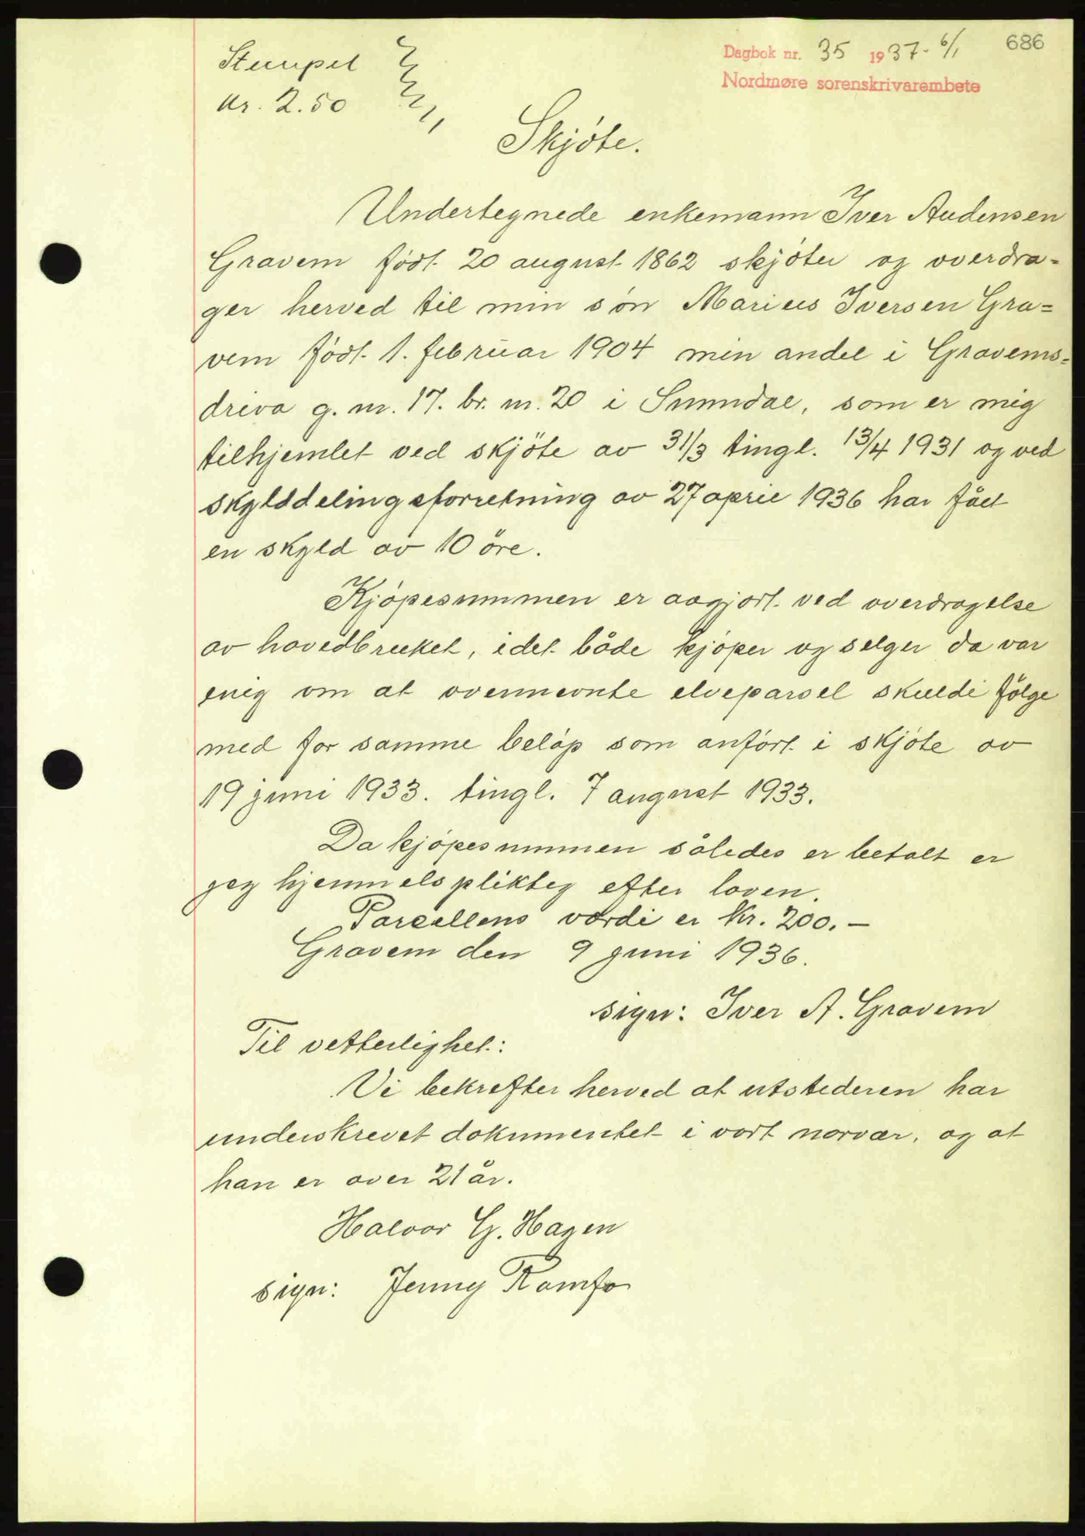 686
Dagbok nr. 35 1937 - 6/1
Nordmøre sorenskrivarembete
Stempel
kr. 2.50
Skjöte.
Undertegnede enkemann Iver Audensen
Gravem født 20 august 1862 skjöter og overdra=
ger herved til min sön Marius Iversen Gra=
vem födt 1. februar 1904 min andel i Gravems=
driva g. nr. 17. br. nr. 20 i Sunndal, som er mig
tilhjemlet ved skjöte av 31/3 tingl. 13/4 1931 og ved
skylddelingsforretning av 27 april 1936 har fået
en skyld av 10 öre.
Kjöpesummen er avgjort ved overdragelse
av hovedbruket, idet både kjöper og selger da var
enig om at overnevnte elveparsel skulde fölge
med for samme belöp som anfört i skjöte av
19 juni 1933. tingl. 7 august 1933.
Da kjöpesummen således er betalt er
jeg hjemmelspliktig efter loven.
Parsellens værdi er kr. 200.-
Gravem den 9 juni 1936.
sign: Iver A. Gravem
Til vetterlighet:
Vi bekrefter herved at utstederen har
underskrevet dokumentet i vort nærvær, og at
han er over 21 år.
Halvor G. Hagen
sign: Jenny Ramfo